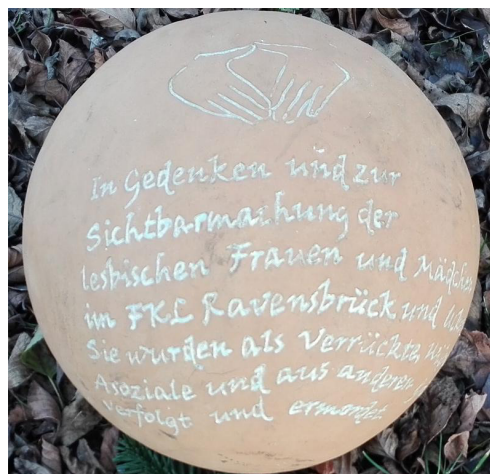 In Gedenken und zur
Sichtbarmachung der
lesbischen Frauen und Mädchen
im FKL Ravensbrück und
Sie wurden als Verrückte,
Asoziale und aus anderen
verfolgt und ermordet